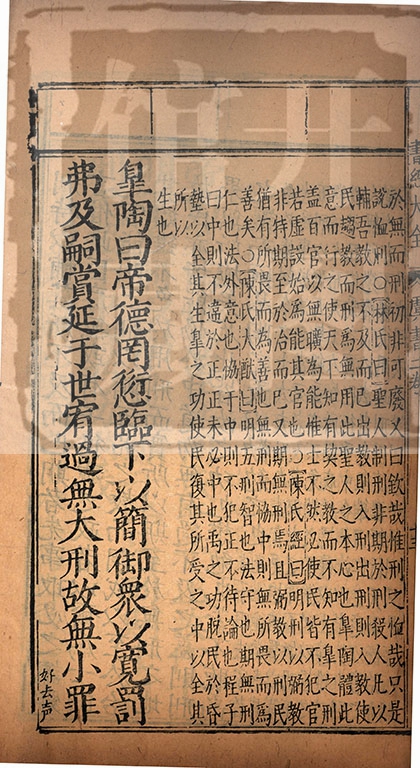 於無而刑初非可廢又曰欽哉惟刑之恤哉只是
說恤刑○林氏曰聖人制刑非期於刑殺人凡以
輔吾教之不及而已出教則入刑出刑則入教使
民趨教而刑為無用此聖人之本心也皐陶體此
意而行之使天下知有契之教而不知有皐之刑
蓋百官以無曠為能惟士不然必使民皆不犯官
若虛設始為能其官也○陳氏經曰明刑以弼教
非特期至於治而已又期無刑焉且弼教以刑民
猶有所畏而為善也無刑而協中則無所畏而為
善矣○陳氏大猷曰明五刑智也法守也期無刑
仁也法外意也協于中則不犯正不待論也程子
曰中則不違於正正未必中也禹之功脫民於昏
墊以全其生皐之功使民復其所受之中以全其
所以
生也
皐陶曰帝德罔愆臨下以簡御衆以寬罰
弗及嗣賞延于世宥過無大刑故無小罪
好去聲